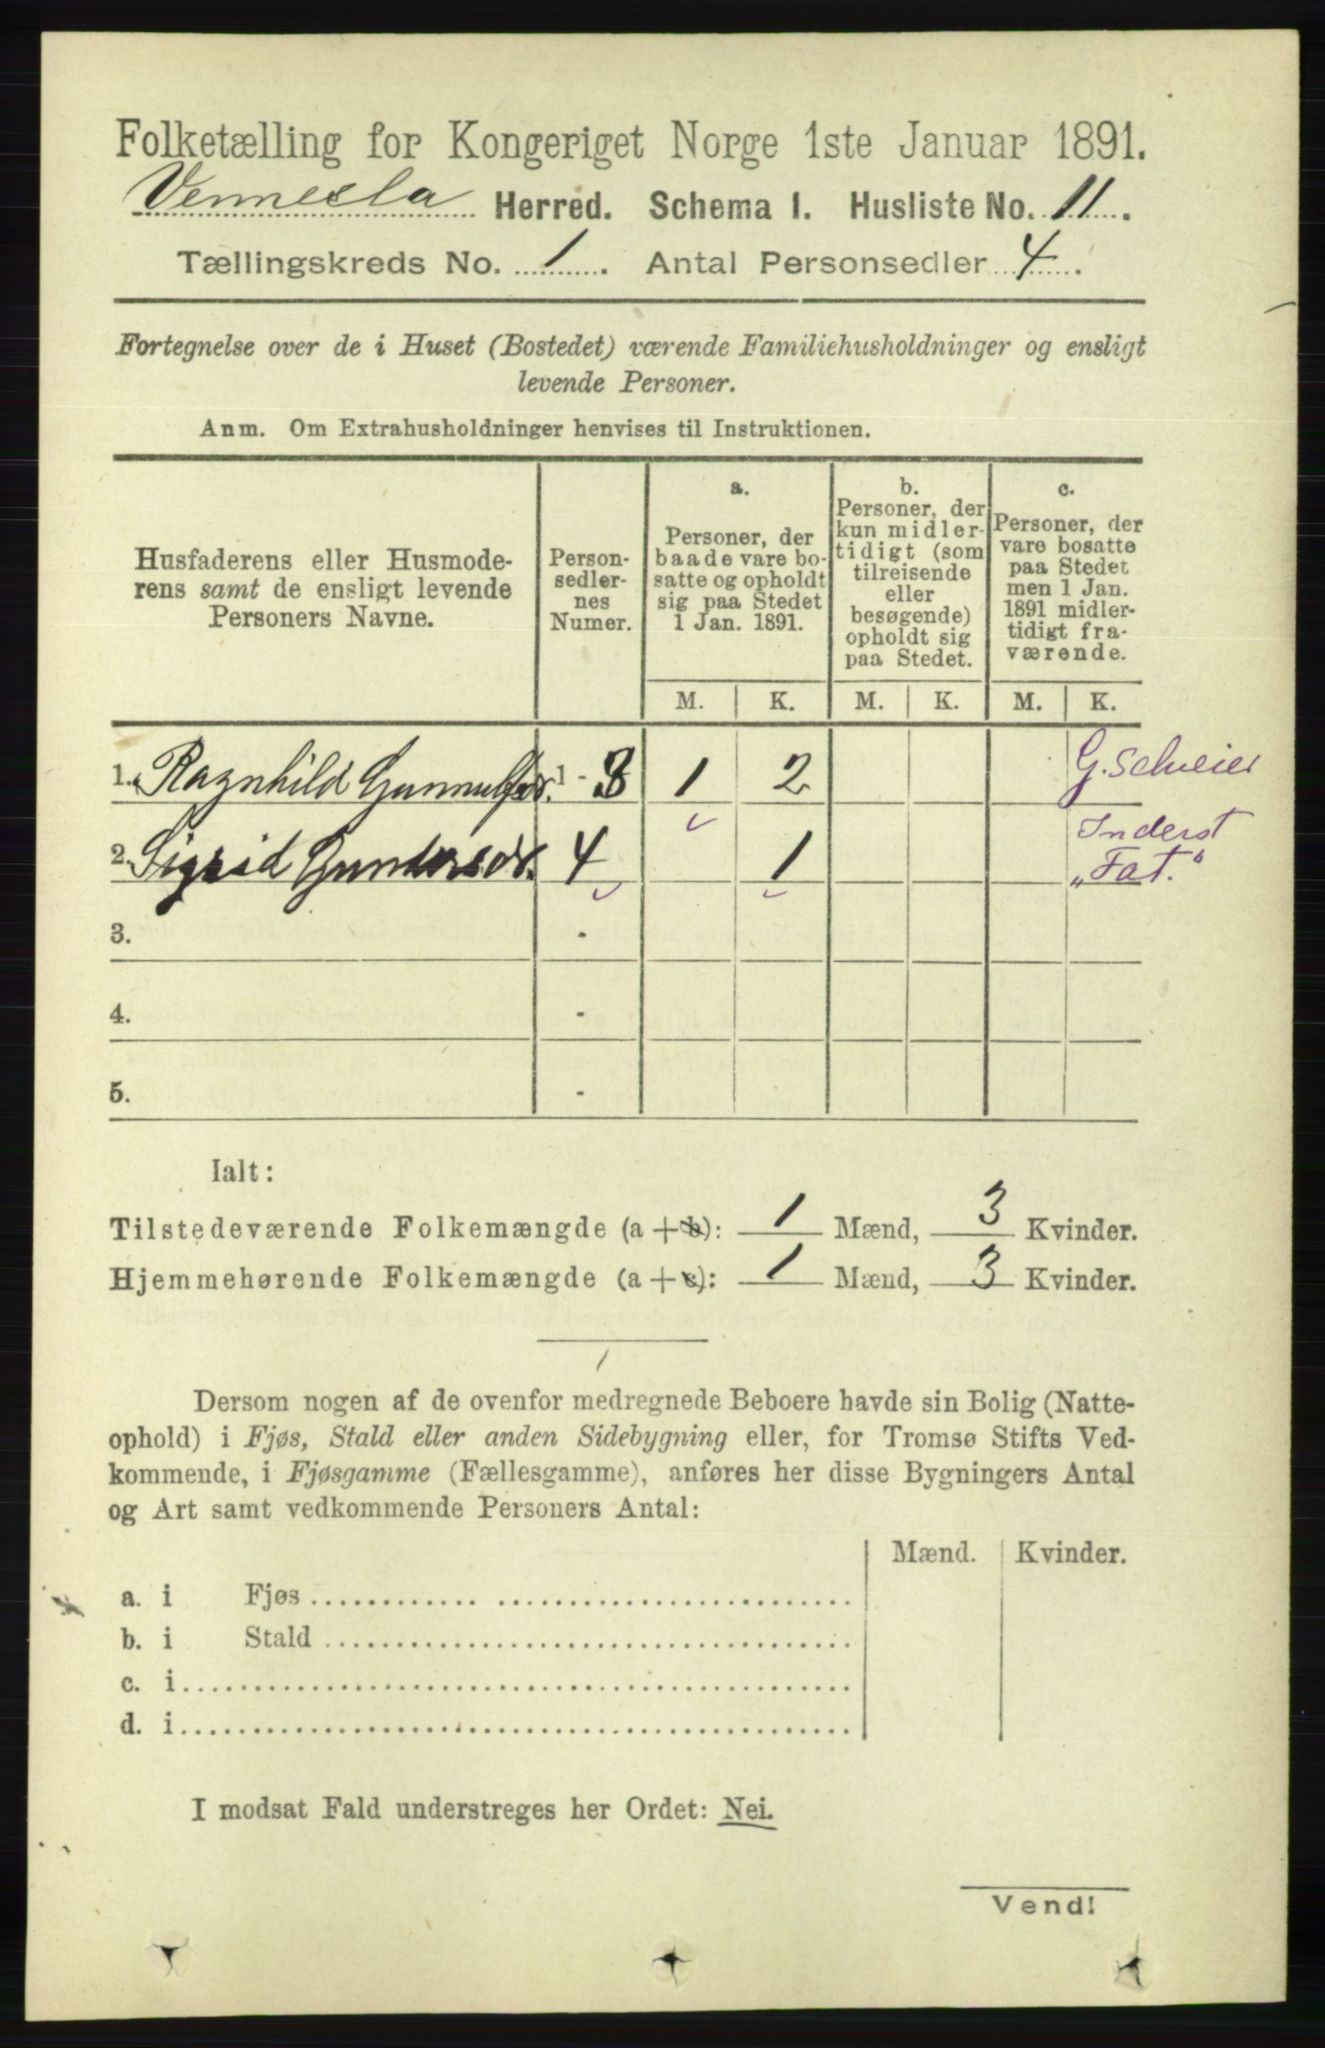 Folketælling for Kongeriget Norge 1ste Januar 1891.
Vennesla Herred. Schema 1. Husliste No. 11.
Tællingskreds No. 1. Antal Personsedler 4.
Fortegnelse over de i Huset (Bostedet) værende Familiehusholdninger og ensligt
levende Personer.
Anm. Om Extrahusholdninger henvises til Instruktionen.
Husfaderens eller Husmode-
rens samt de ensligt levende
Personers Navne.
Person-
sedler-
nes
Numer.
a.
Personer, der
baade vare bo-
satte og opholdt
sig paa Stedet
1 Jan. 1891.
b.
Personer, der
kun midler-
tidigt (som
tilreisende
eller
besøgende)
opholdt sig
paa Stedet.
c.
Personer, der
vare bosatte
paa Stedet
men 1 Jan.
1891 midler-
tidigt fra-
værende.
M. K. M. K. M. K.
1. Ragnhild Gunnulfsdr. 1 - 3 1 2 G. Selveier
2. Sigrid Gundersdr. 4 1 Inderst
"Fat."
3. -
4. -
5. -
Ialt:
Tilstedeværende Folkemængde (a + b): 1 Mænd, 3 Kvinder.
Hjemmehørende Folkemængde (a + c): 1 Mænd, 3 Kvinder.
Dersom nogen af de ovenfor medregnede Beboere havde sin Bolig (Natte-
ophold) i Fjøs, Stald eller anden Sidebygning eller, for Tromsø Stifts Ved-
kommende, i Fjøsgamme (Fællesgamme), anføres her disse Bygningers Antal
og Art samt vedkommende Personers Antal:
Mænd. Kvinder.
a. i Fjøs
b. i Stald
c. i
d. i
I modsat Fald understreges her Ordet: Nei.
Vend!